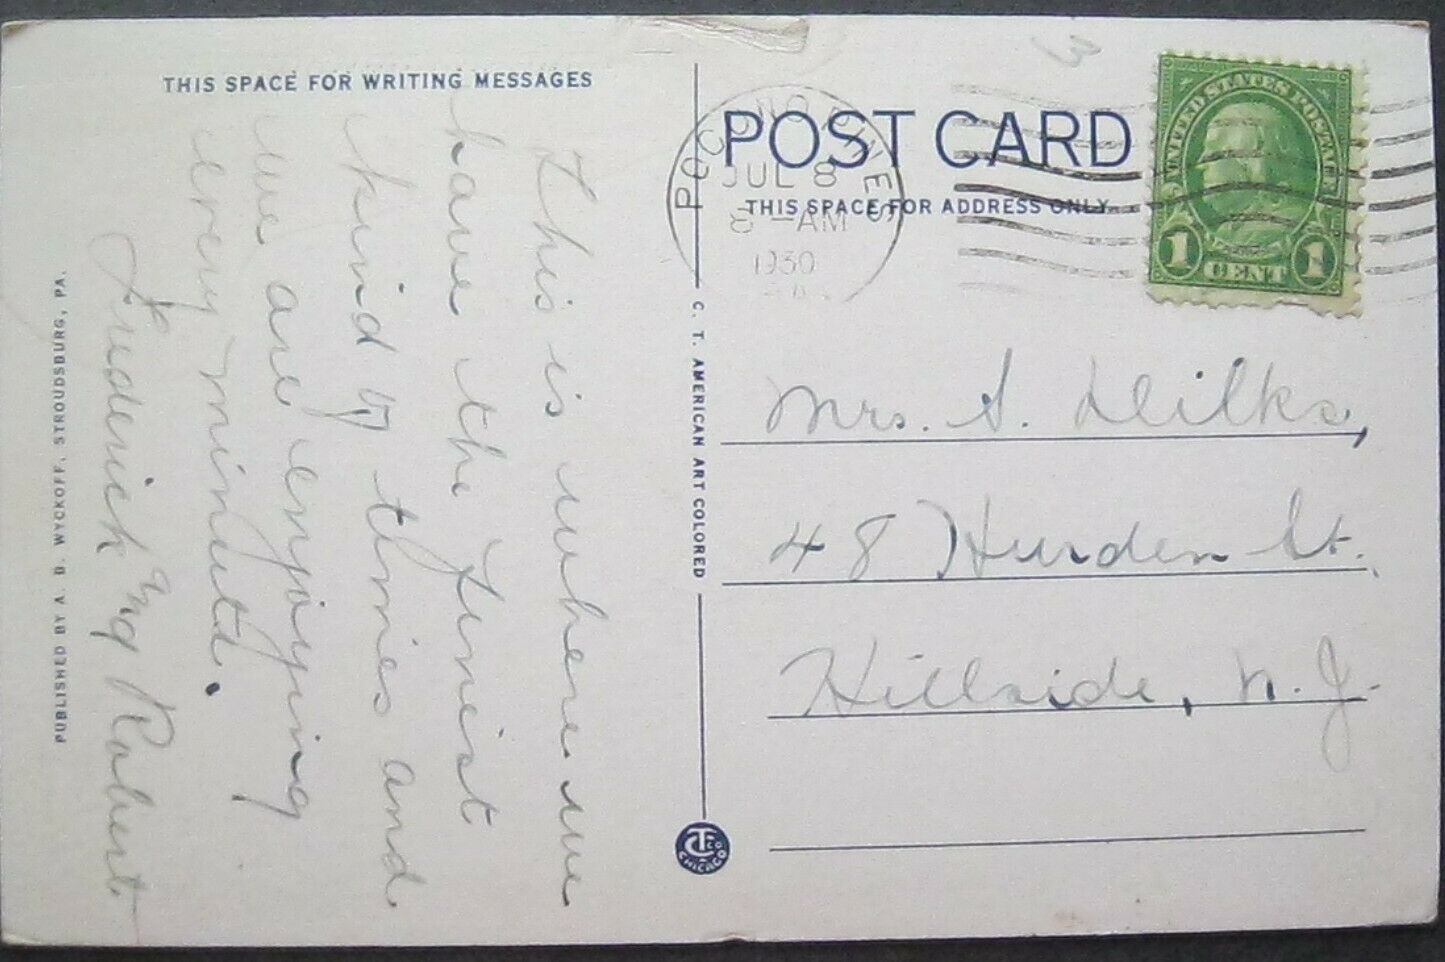 THIS SPACE FOR WRITING MESSAGES
This is where we
have the finest
kind of times and
we are enjoying
every minute.
Frederick and Robert
PUBLISHED BY A. B. WYCKOFF, STROUDSBURG, PA.
C. T. AMERICAN ART COLORED
CT Co
CHICAGO
POST CARD
THIS SPACE FOR ADDRESS ONLY
POCONO PINES
JUL 8
-AM
1930
PA.
3
UNITED STATES POSTAGE
1 CENT 1
Mrs. S. Dilks,
48 Hurden St.
Hillside, N. J.